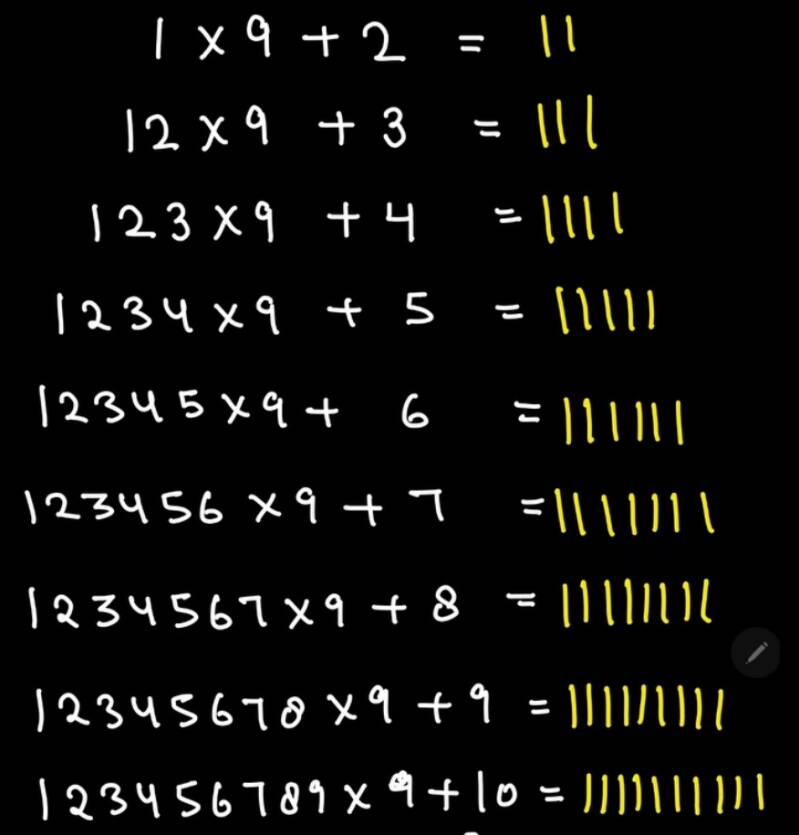 1 × 9 + 2 = 11
12 × 9 + 3 = 111
123 × 9 + 4 = 1111
1234 × 9 + 5 = 11111
12345 × 9 + 6 = 111111
123456 × 9 + 7 = 1111111
1234567 × 9 + 8 = 11111111
12345678 × 9 + 9 = 111111111
123456789 × 9 + 10 = 1111111111